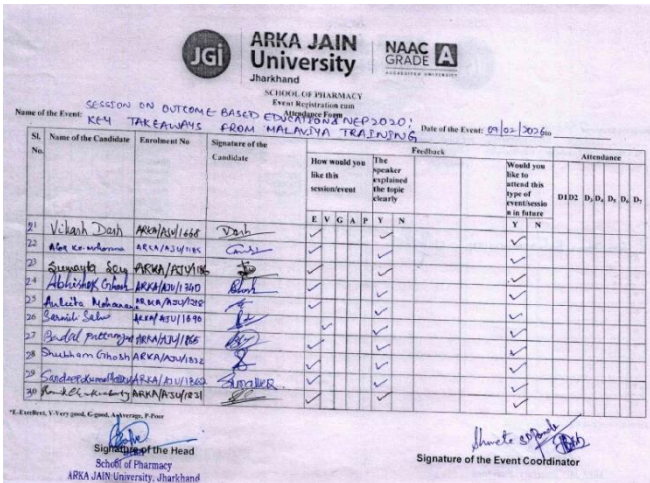 JGi
ARKA JAIN
University
Jharkhand
NAAC
GRADE A
ACCREDITED UNIVERSITY
SCHOOL OF PHARMACY
Event Registration cum
Attendance Form
Name of the Event: SESSION ON OUTCOME BASED EDUCATION & NEP2020:
KEY TAKEAWAYS FROM MALAVIYA TRAINING
Date of the Event: 09/02/2026 to
Sl. No. Name of the Candidate Enrolment No Signature of the Candidate Feedback Attendance
How would you like this session/event
The speaker explained the topic clearly
Would you like to attend this type of event/session in future
D1 D2 D3 D4 D5 D6 D7
E V G A P Y N Y N
21 Vikash Dash ARKA/AJU/1668 Dash
22 ARKA/AJU/1186
23 ARKA/AJU/
24 Abhishek Ghosh ARKA/AJU/1340 Ghosh
25 Ankita ARKA/AJU/
26 ARKA/AJU/1690
27 ARKA/AJU/1866
28 Shubham Ghosh ARKA/AJU/1832
29 ARKA/AJU/
30 ARKA/AJU/1831
*E-Excellent, V-Very good, G-good, A-Average, P-Poor
Signature of the Head
School of Pharmacy
ARKA JAIN University, Jharkhand
Signature of the Event Coordinator